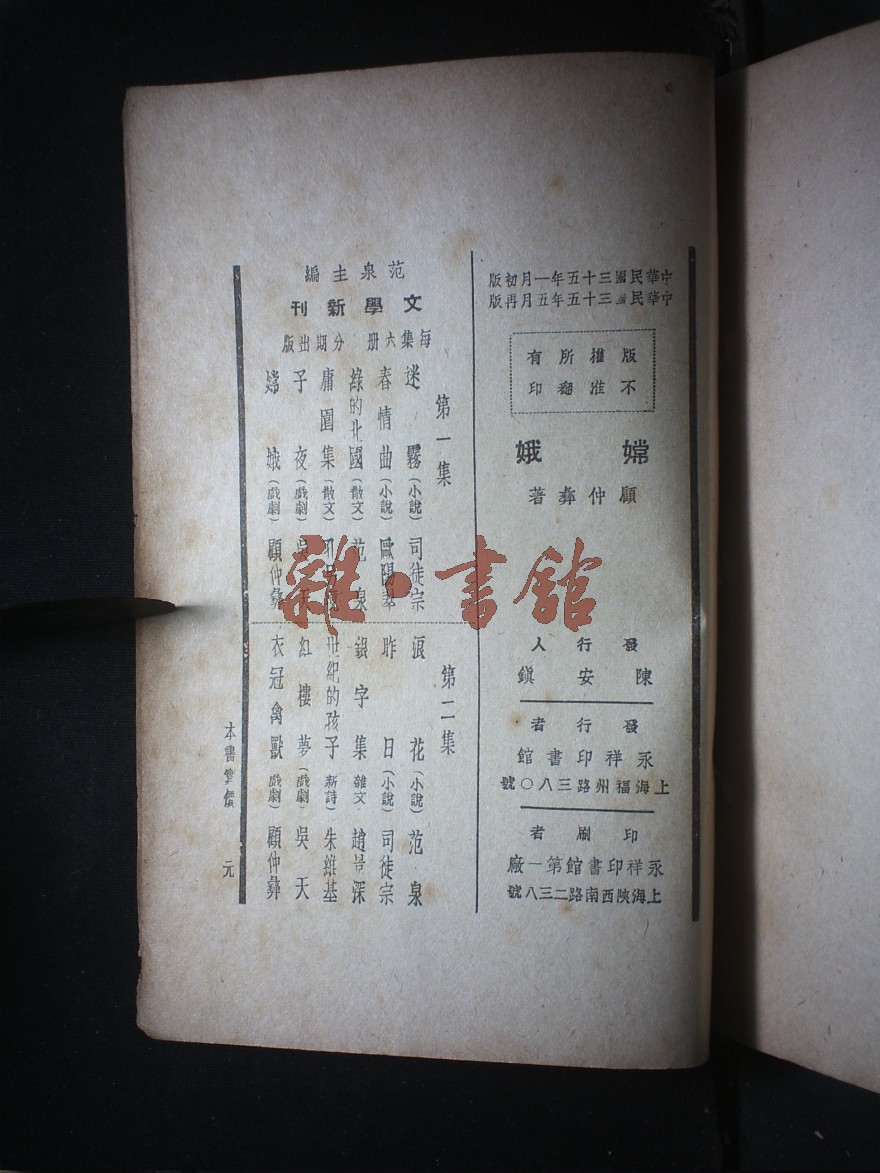 中華民國三十五年一月初版
中華民國三十五年五月再版
版權所有
不准翻印
嫦娥
顧仲彝著
發行人
陳安鎮
發行者
永祥印書館
上海福州路三八〇號
印刷者
永祥印書館第一廠
上海陝西南路二三八號
范泉主編
文學新刊
每集六册 分期出版
第一集
迷霧（小說）司徒宗
春情曲（小說）歐陽翠
綠的北國（散文）范泉
庸園集（散文）
子夜（戲劇）吳天
嫦娥（戲劇）顧仲彝
第二集
浪花（小說）范泉
昨日（小說）司徒宗
銀字集 雜文 趙景深
世紀的孩子 新詩 朱維基
紅樓夢（戲劇）吳天
衣冠禽獸（戲劇）顧仲彝
本書實價 元
雜·書館